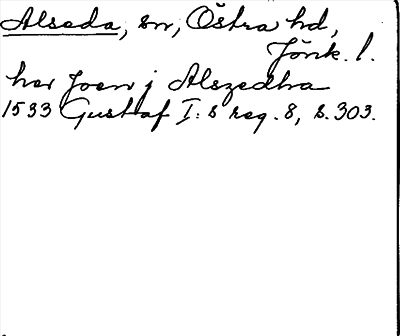 Alseda, sn, Östra hd,
Jönk. l.
her Joen j Alszedha
1533 Gustaf I:s reg. 8, s. 303.